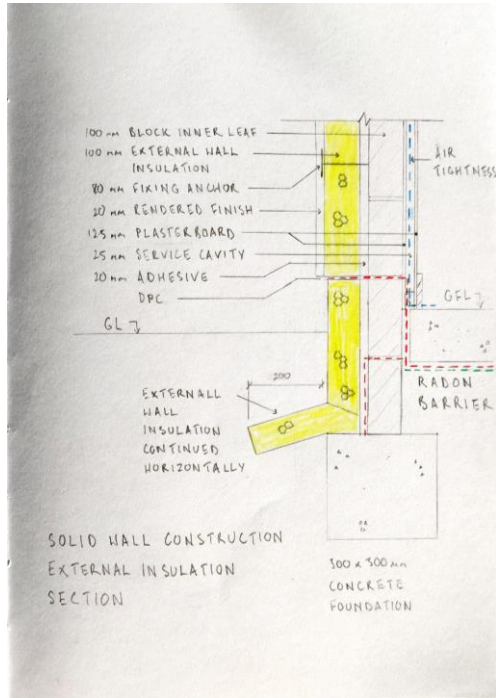 100 mm BLOCK INNER LEAF
100 mm EXTERNAL WALL
INSULATION
80 mm FIXING ANCHOR
20 mm RENDERED FINISH
12.5 mm PLASTERBOARD
25 mm SERVICE CAVITY
20 mm ADHESIVE
DPC
GL
AIR
TIGHTNESS
GFL
200
EXTERNALL
WALL
INSULATION
CONTINUED
HORIZONTALLY
RADON
BARRIER
SOLID WALL CONSTRUCTION
EXTERNAL INSULATION
SECTION
300 x 300 mm
CONCRETE
FOUNDATION